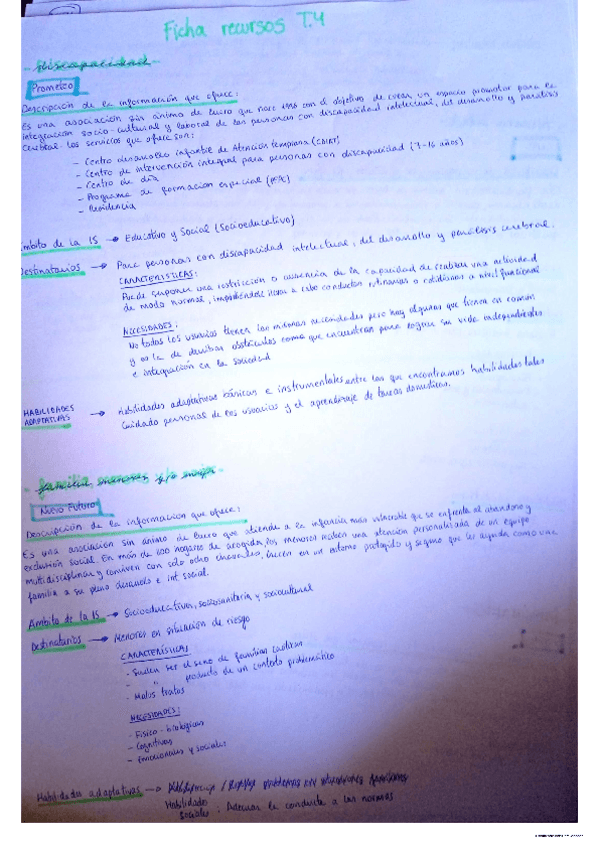 Ficha recursos T.4
- Discapacidad -
Prometeo
Descripción de la información que ofrece:
Es una asociación sin ánimo de lucro que nace con el objetivo de crear un espacio promotor para la
integración socio-cultural y laboral de las personas con discapacidad intelectual, del desarrollo y parálisis
cerebral. Los servicios que ofrece son:
- Centro desarrollo infantil de Atención Temprana
- Centro de intervención integral para personas con discapacidad (7-16 años)
- Centro de día
- Programa de formación especial
- Residencia
Ámbito de la IS → Educativo y Social (Socioeducativo)
Destinatarios → Para personas con discapacidad intelectual, del desarrollo y parálisis cerebral.
CARACTERÍSTICAS:
Puede suponer una restricción o ausencia de la capacidad de realizar una actividad
de modo normal, impidiéndose llevar a cabo conductas rutinarias o cotidianas a nivel funcional
NECESIDADES:
No todos los usuarios tienen las mismas necesidades pero hay algunas que tienen en común
y es la de derribar obstáculos como que encuentran para lograr su vida independiente
e integración en la sociedad
HABILIDADES
ADAPTATIVAS → Habilidades adaptativas básicas e instrumentales entre las que encontramos habilidades tales
cuidado personal de los usuarios y el aprendizaje de tareas domésticas.
- familia menores y/o mujer -
Nuevo Futuro
Descripción de la información que ofrece:
Es una asociación sin ánimo de lucro que atiende a la infancia más vulnerable que se enfrenta al abandono y
exclusión social. En más de 100 hogares de acogida, los menores reciben una atención personalizada de un equipo
multidisciplinar y conviven con solo ocho chavales, crecen en un entorno protegido y seguro que les ayuda como una
familia a su pleno desarrollo e int social.
Ámbito de la IS → Socioeducativas, sociosanitaria y sociocultural
Destinatarios → Menores en situación de riesgo
CARACTERÍSTICAS
- Suelen ser el seno de familias
- " producto de un contexto problemático
- Malos tratos
NECESIDADES:
- Físico-biológicas
- Cognitivas
- Emocionales y sociales
Habilidades adaptativas → problemas en situaciones familiares
Habilidades
sociales: Adecuar la conducta a las normas